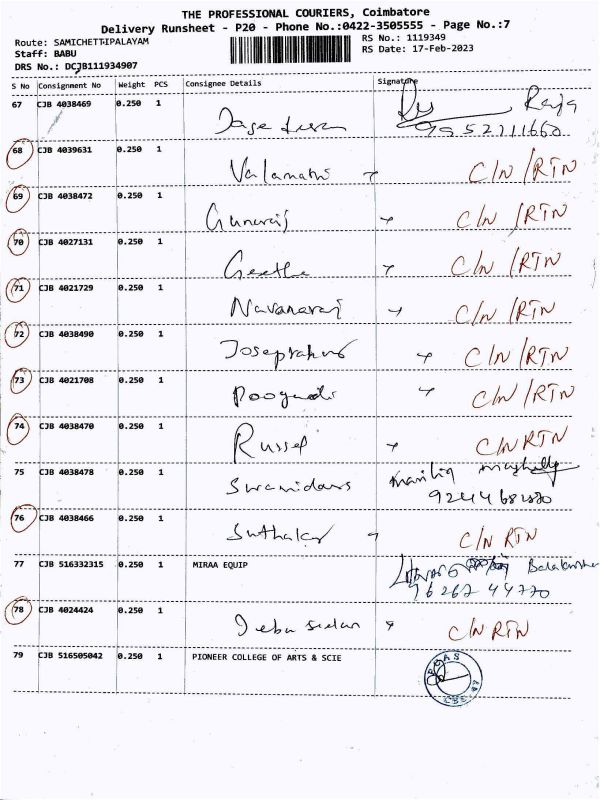 THE PROFESSIONAL COURIERS, Coimbatore
Delivery Runsheet - P20 - Phone No.:0422-3505555 - Page No.:7
Route: SAMICHETTIPALAYAM
RS No.: 1119349
Staff: BABU
RS Date: 17-Feb-2023
DRS No.: DCJB111934907
S No Consignment No Weight PCS Consignee Details Signature
67 CJB 4038469 0.250 1 Raja
9952711660
68 CJB 4039631 0.250 1 Valamathi C/N /RTN
69 CJB 4038472 0.250 1 Gunaraj C/N /RTN
70 CJB 4027131 0.250 1 Geetha C/N /RTN
71 CJB 4021729 0.250 1 Navanaraj C/N /RTN
72 CJB 4038490 0.250 1 C/N /RTN
73 CJB 4021708 0.250 1 C/N /RTN
74 CJB 4038470 0.250 1 Russel C/N RTN
75 CJB 4038478 0.250 1 Swamidass
76 CJB 4038466 0.250 1 Suthakar C/N RTN
77 CJB 516332315 1 MIRAA EQUIP
78 CJB 4024424 0.250 1 C/N RTN
79 CJB 516505042 0.250 1 PIONEER COLLEGE OF ARTS & SCIE